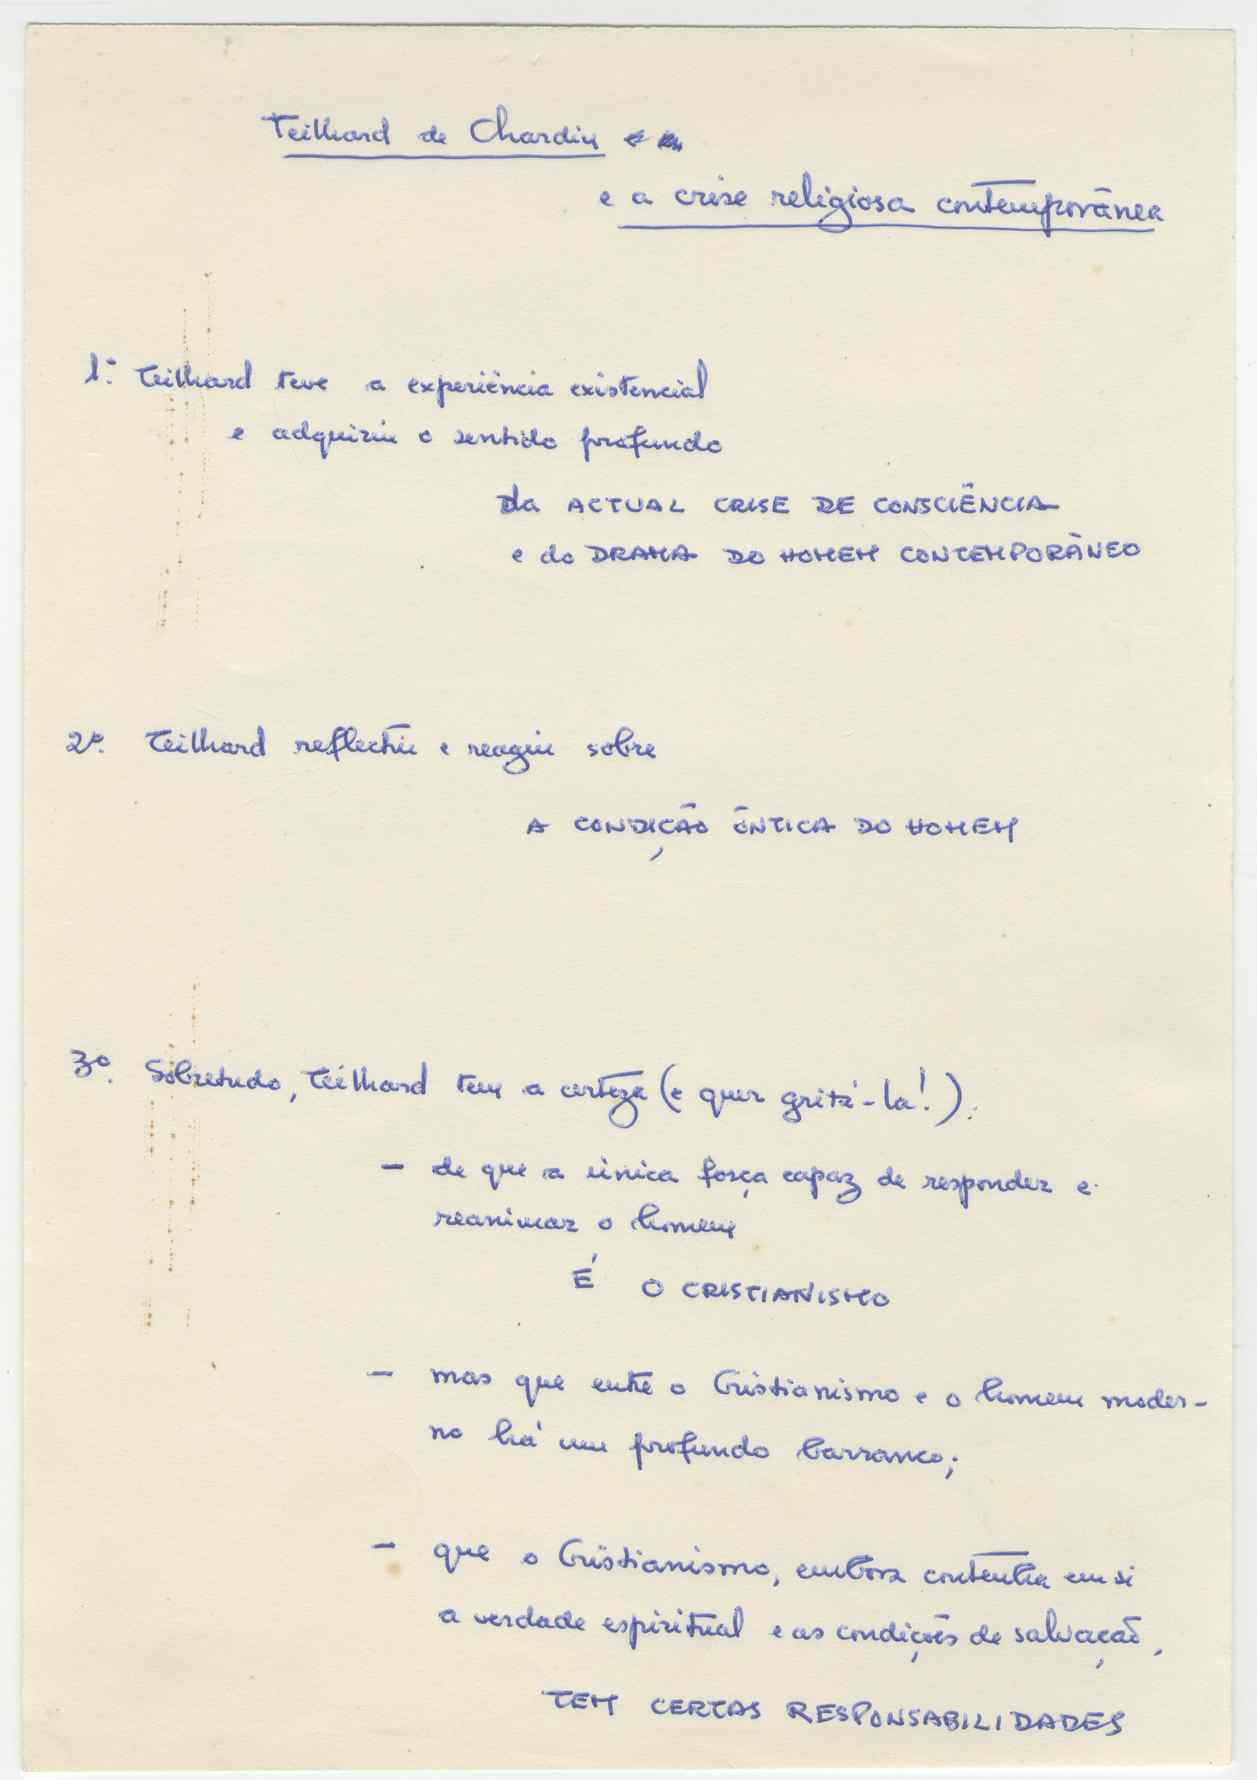 Teilhard de Chardin
e a crise religiosa contemporânea
1º. Teilhard teve a experiência existencial
e adquiriu o sentido profundo
da ACTUAL CRISE DE CONSCIÊNCIA
e do DRAMA DO HOMEM CONTEMPORÂNEO
2º. Teilhard reflectiu e reagiu sobre
A CONDIÇÃO ÔNTICA DO HOMEM
3º. Sobretudo, Teilhard tem a certeza (e quer gritá-la!).
- de que a única força capaz de responder e
reanimar o homem
É O CRISTIANISMO
- mas que entre o Cristianismo e o homem moder-
no há um profundo barranco;
- que o Cristianismo, embora contenha em si
a verdade espiritual e as condições de salvação,
TEM CERTAS RESPONSABILIDADES